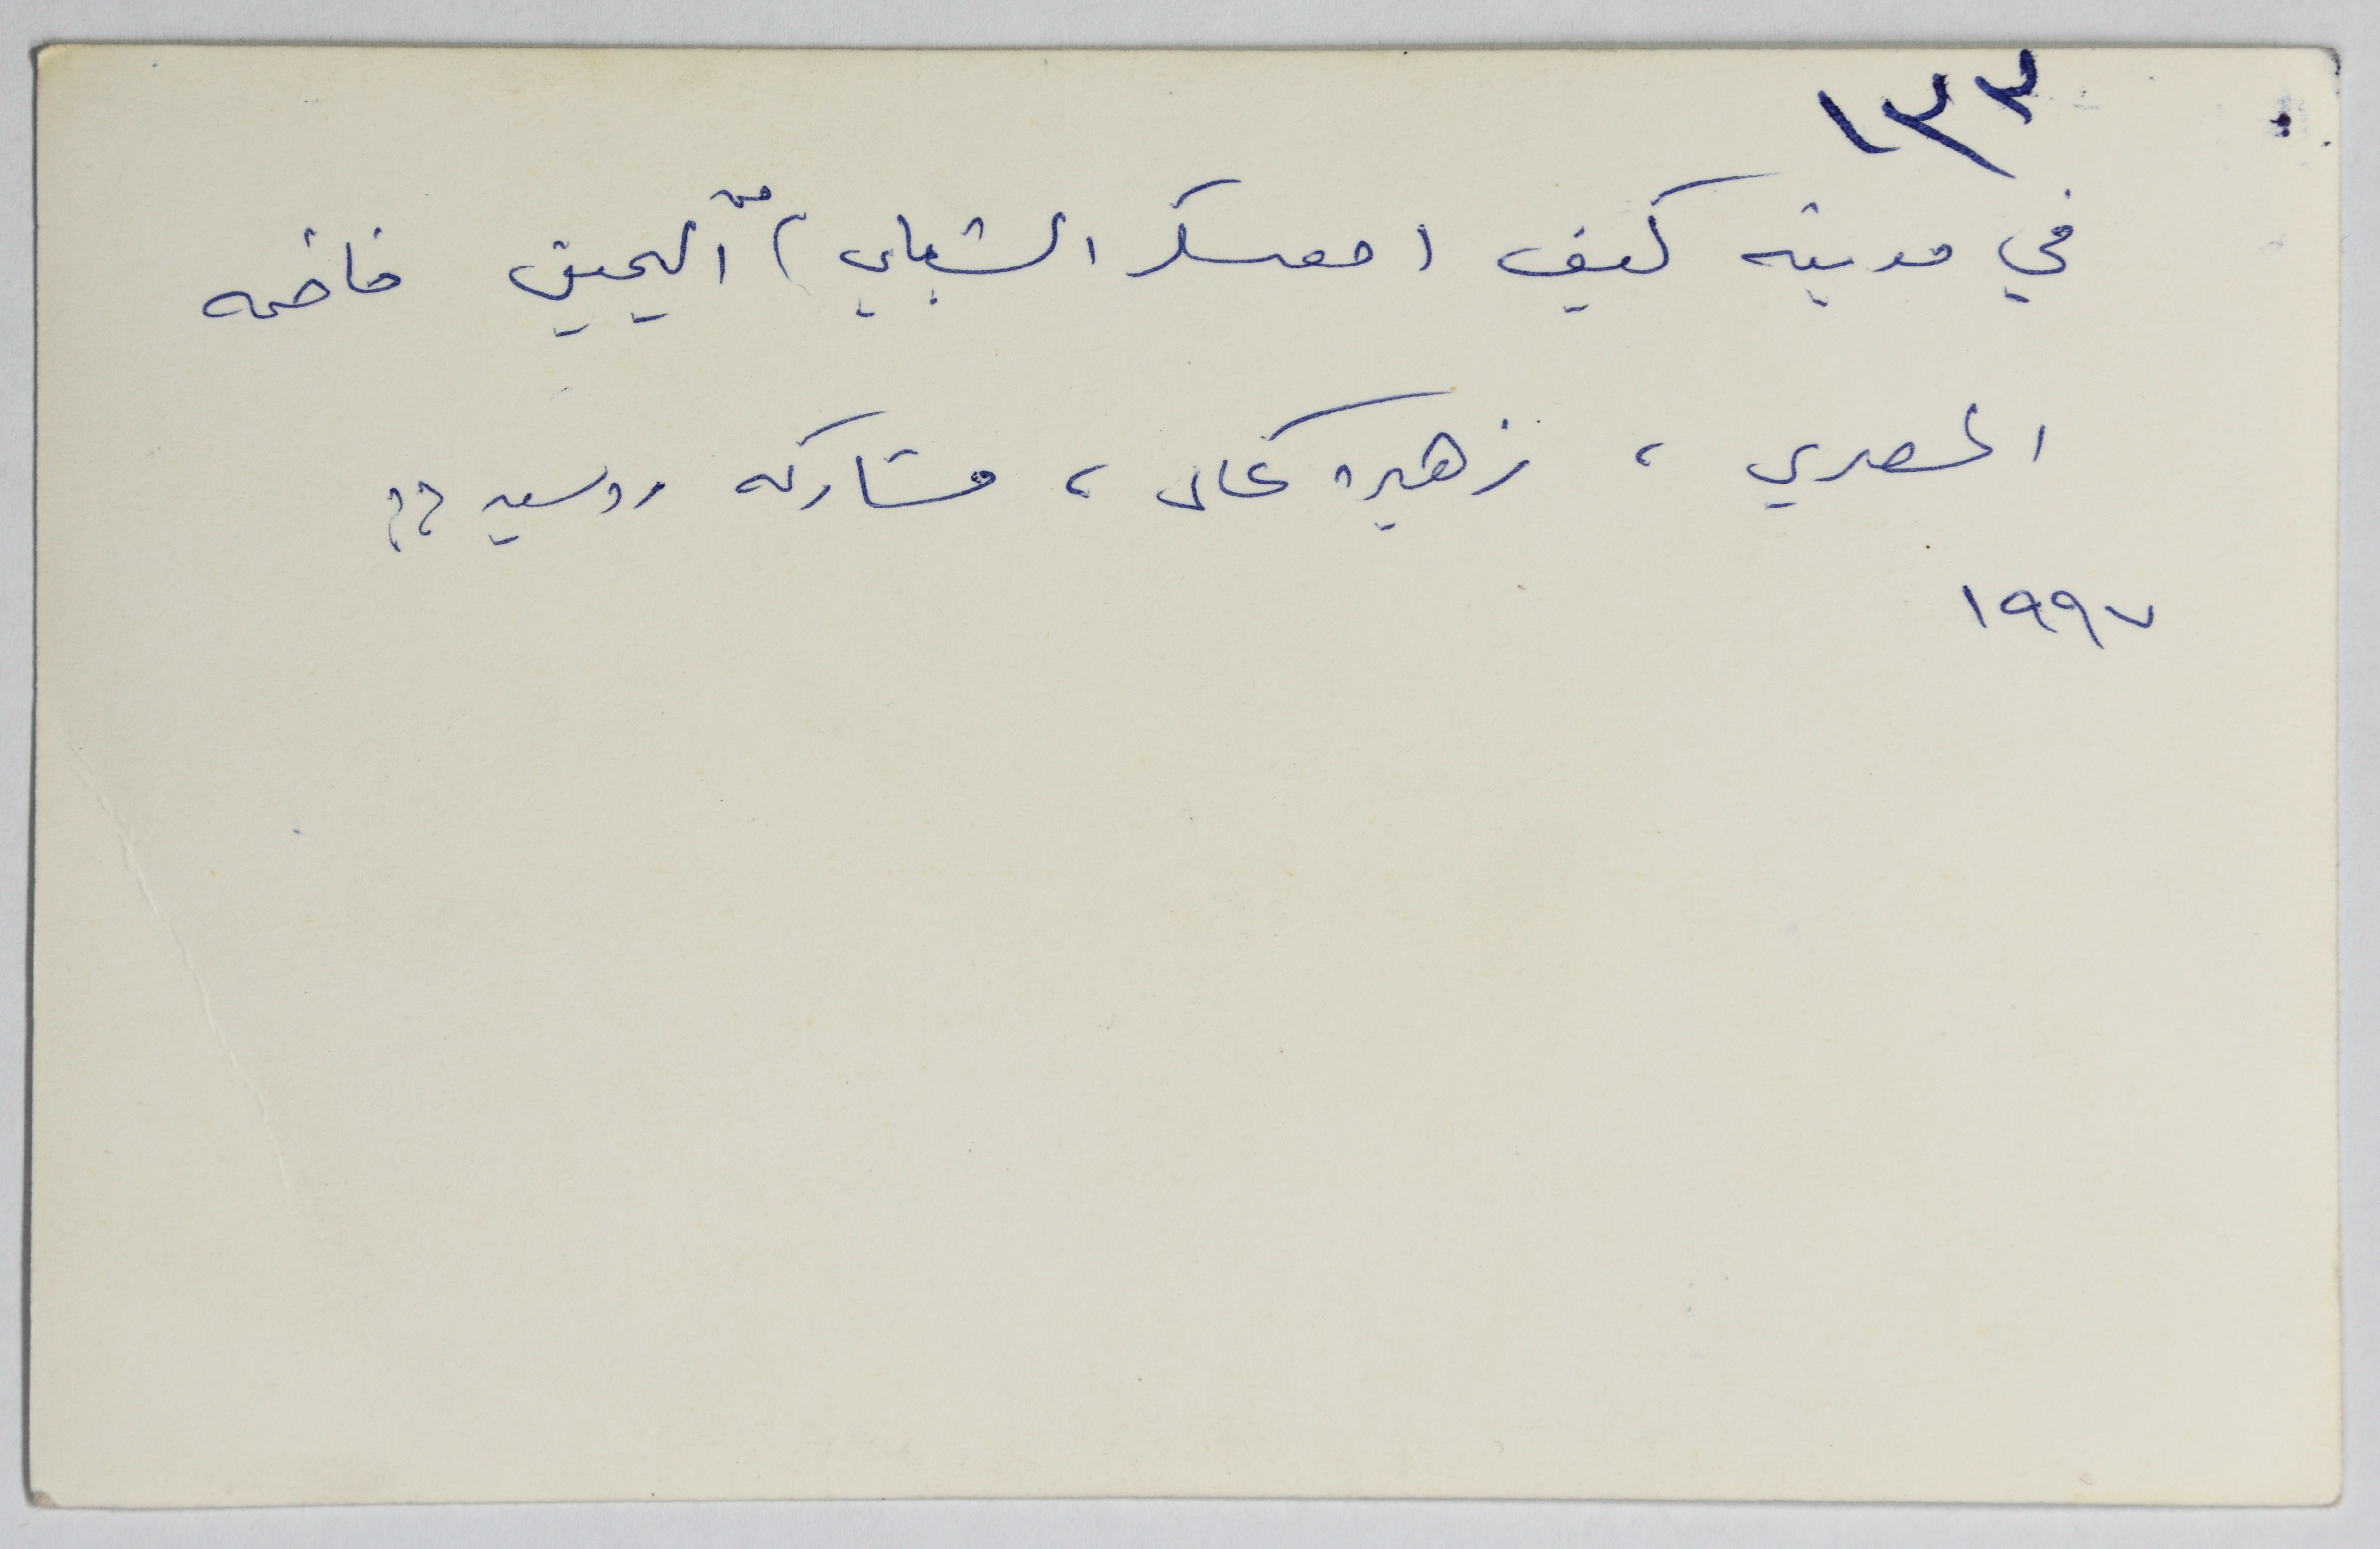 ١٣٣
في مدينة كييف (معسكر الشبابي) من اليمين فاطمه
المصري، زهيره كمال، مشاركه روسيه ؟؟
١٩٩٧